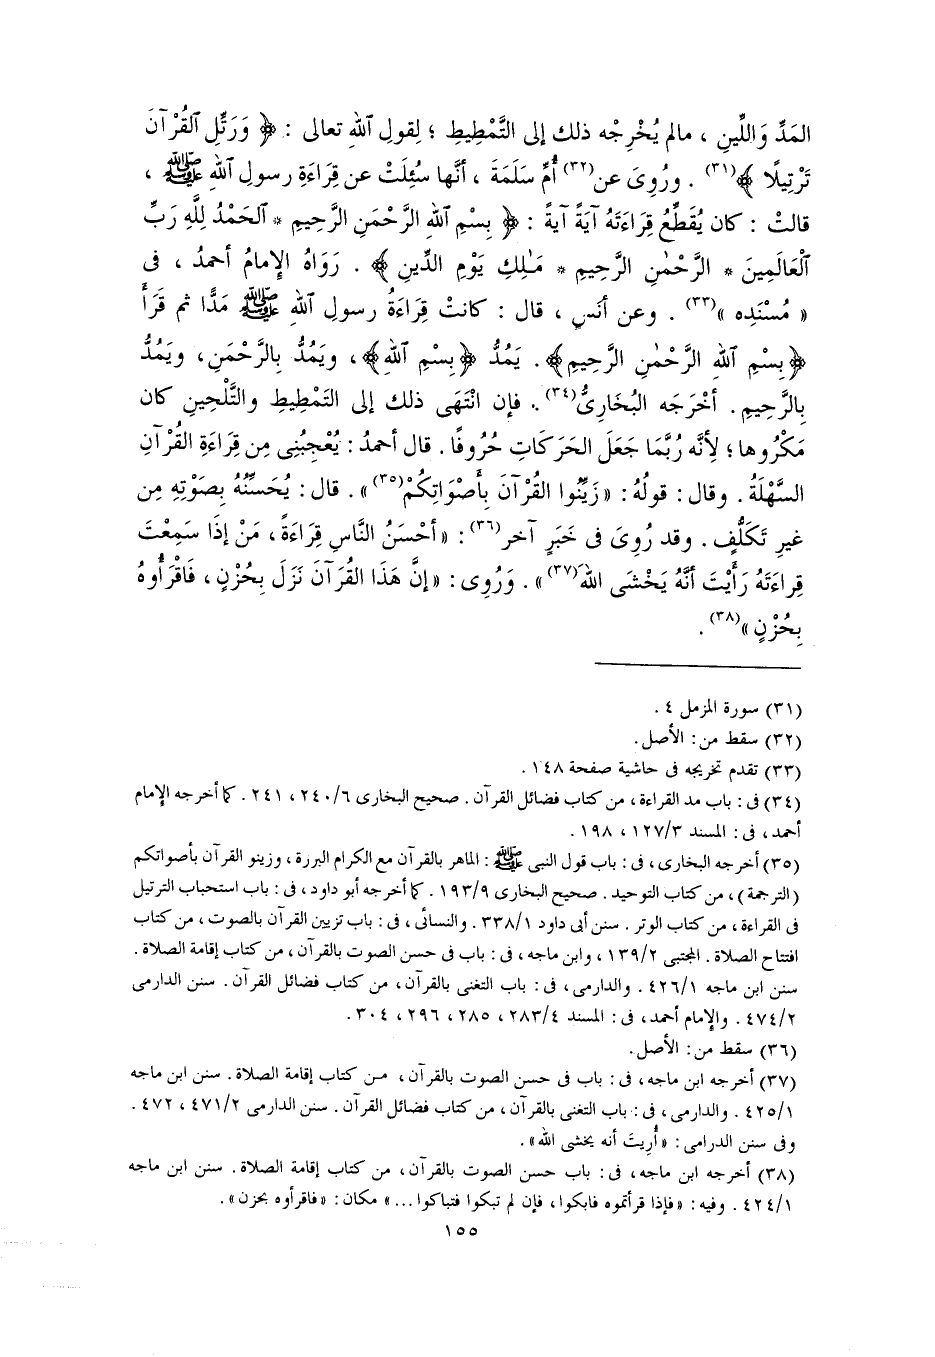 المَدِّ وَاللِّينِ ، مالم يُخْرِجْه ذلك إلى التَّمْطِيطِ ؛ لِقولِ ٱللهِ تعالى : ﴿ وَرَتِّلِ ٱلقُرْآنَ
تَرْتِيلًا ﴾(٣١) . ورُوِىَ عن(٣٢) أُمِّ سَلَمَةَ ، أنَّها سُئِلَتْ عن قِرَاءَةِ رسولِ ٱللهِ ﷺ ،
قالتْ : كان يُقَطِّعُ قِرَاءَتَهُ آيَةً آيةً : ﴿ بِسْمِ ٱللهِ الرَّحْمٰنِ الرَّحِيمِ * ٱلحَمْدُ لِلَّهِ رَبِّ
ٱلْعَالَمِينَ * الرَّحْمٰنِ الرَّحِيمِ * مَـٰلِكِ يَوْمِ الدِّينِ ﴾ . رَوَاهُ الإِمامُ أحمدُ ، فى
« مُسْنَدِه »(٣٣) . وعن أنَسٍ ، قال : كانتْ قِرَاءَةُ رسولِ ٱللهِ ﷺ مَدًّا ثم قَرَأَ
﴿بِسْمِ ٱللهِ الرَّحْمٰنِ الرَّحِيمِ﴾ . يَمُدُّ ﴿بِسْمِ ٱللهِ﴾ ، ويَمُدُّ بِالرَّحْمٰنِ، ويَمُدُّ
بِالرَّحِيمِ. أخْرَجَه البُخَارِىُّ(٣٤) . فإن انْتَهَى ذلك إلى التَّمْطِيطِ والتَّلْحِينِ كان
مَكْرُوها؛ لأِنَّه رُبَّما جَعَلَ الحَرَكَاتِ حُرُوفًا. قال أحمدُ: يُعْجِبُنِى مِن قِرَاءَةِ القُرْآنِ
السَّهْلَةُ . وقال: قولُهُ: «زَيِّنُوا القُرْآنَ بِأَصْوَاتِكُمْ(٣٥)» . قال: يُحَسِّنُهُ بِصَوْتِهِ مِن
غيرِ تَكَلُّفٍ . وقد رُوِىَ فى خَبَرٍ آخر(٣٦): «أحْسَنُ النَّاسِ قِرَاءَةً، مَنْ إذَا سَمِعْتَ
قِراءَتَهُ رَأَيْتَ أنَّهُ يَخْشَى اللهَ(٣٧)» . وَرُوِى: «إنَّ هَذَا القُرَآنَ نَزَل بِحُزْنٍ ، فَاقْرَأُوهُ
بِحُزْنٍ»(٣٨) .
(٣١) سورة المزمل ٤ .
(٣٢) سقط من: الأصل.
(٣٣) تقدم تخريجه فى حاشية صفحة ١٤٨ .
(٣٤) فى : باب مد القراءة، من كتاب فضائل القرآن . صحيح البخارى ٢٤٠/٦ ، ٢٤١ . كما أخرجه الإمام
أحمد، فى : المسند ١٢٧/٣ ، ١٩٨ .
(٣٥) أخرجه البخارى، فى : باب قول النبى ﷺ : الماهر بالقرآن مع الكرام البررة، وزينو القرآن بأصواتكم
(الترجمة)، من كتاب التوحيد . صحيح البخارى ١٩٣/٩ . كما أخرجه أبو داود، فى : باب استحباب الترتيل
فى القراءة، من كتاب الوتر . سنن أبى داود ٣٣٨/١ . والنسائى، فى : باب تزيين القرآن بالصوت، من كتاب
افتتاح الصلاة . المجتبى ١٣٩/٢ ، وابن ماجه، فى : باب فى حسن الصوت بالقرآن، من كتاب إقامة الصلاة .
سنن ابن ماجه ٤٢٦/١ . والدارمى، فى : باب التغنى بالقرآن، من كتاب فضائل القرآن . سنن الدارمى
٤٧٤/٢ . والإمام أحمد، فى : المسند ٢٨٣/٤ ، ٢٨٥ ، ٢٩٦ ، ٣٠٤ .
(٣٦) سقط من: الأصل.
(٣٧) أخرجه ابن ماجه، فى : باب فى حسن الصوت بالقرآن، من كتاب إقامة الصلاة . سنن ابن ماجه
٤٢٥/١ . والدارمى، فى : باب التغنى بالقرآن، من كتاب فضائل القرآن . سنن الدارمى ٤٧١/٢ ، ٤٧٢ .
وفى سنن الدرامى : «أُرِيتَ أنه يخشى الله» .
(٣٨) أخرجه ابن ماجه، فى : باب حسن الصوت بالقرآن، من كتاب إقامة الصلاة . سنن ابن ماجه
٤٢٤/١ . وفيه : «فإذا قرأتموه فابكوا، فإن لم تبكوا فتباكوا ...» مكان : «فاقرأوه بحزن» .
١٥٥